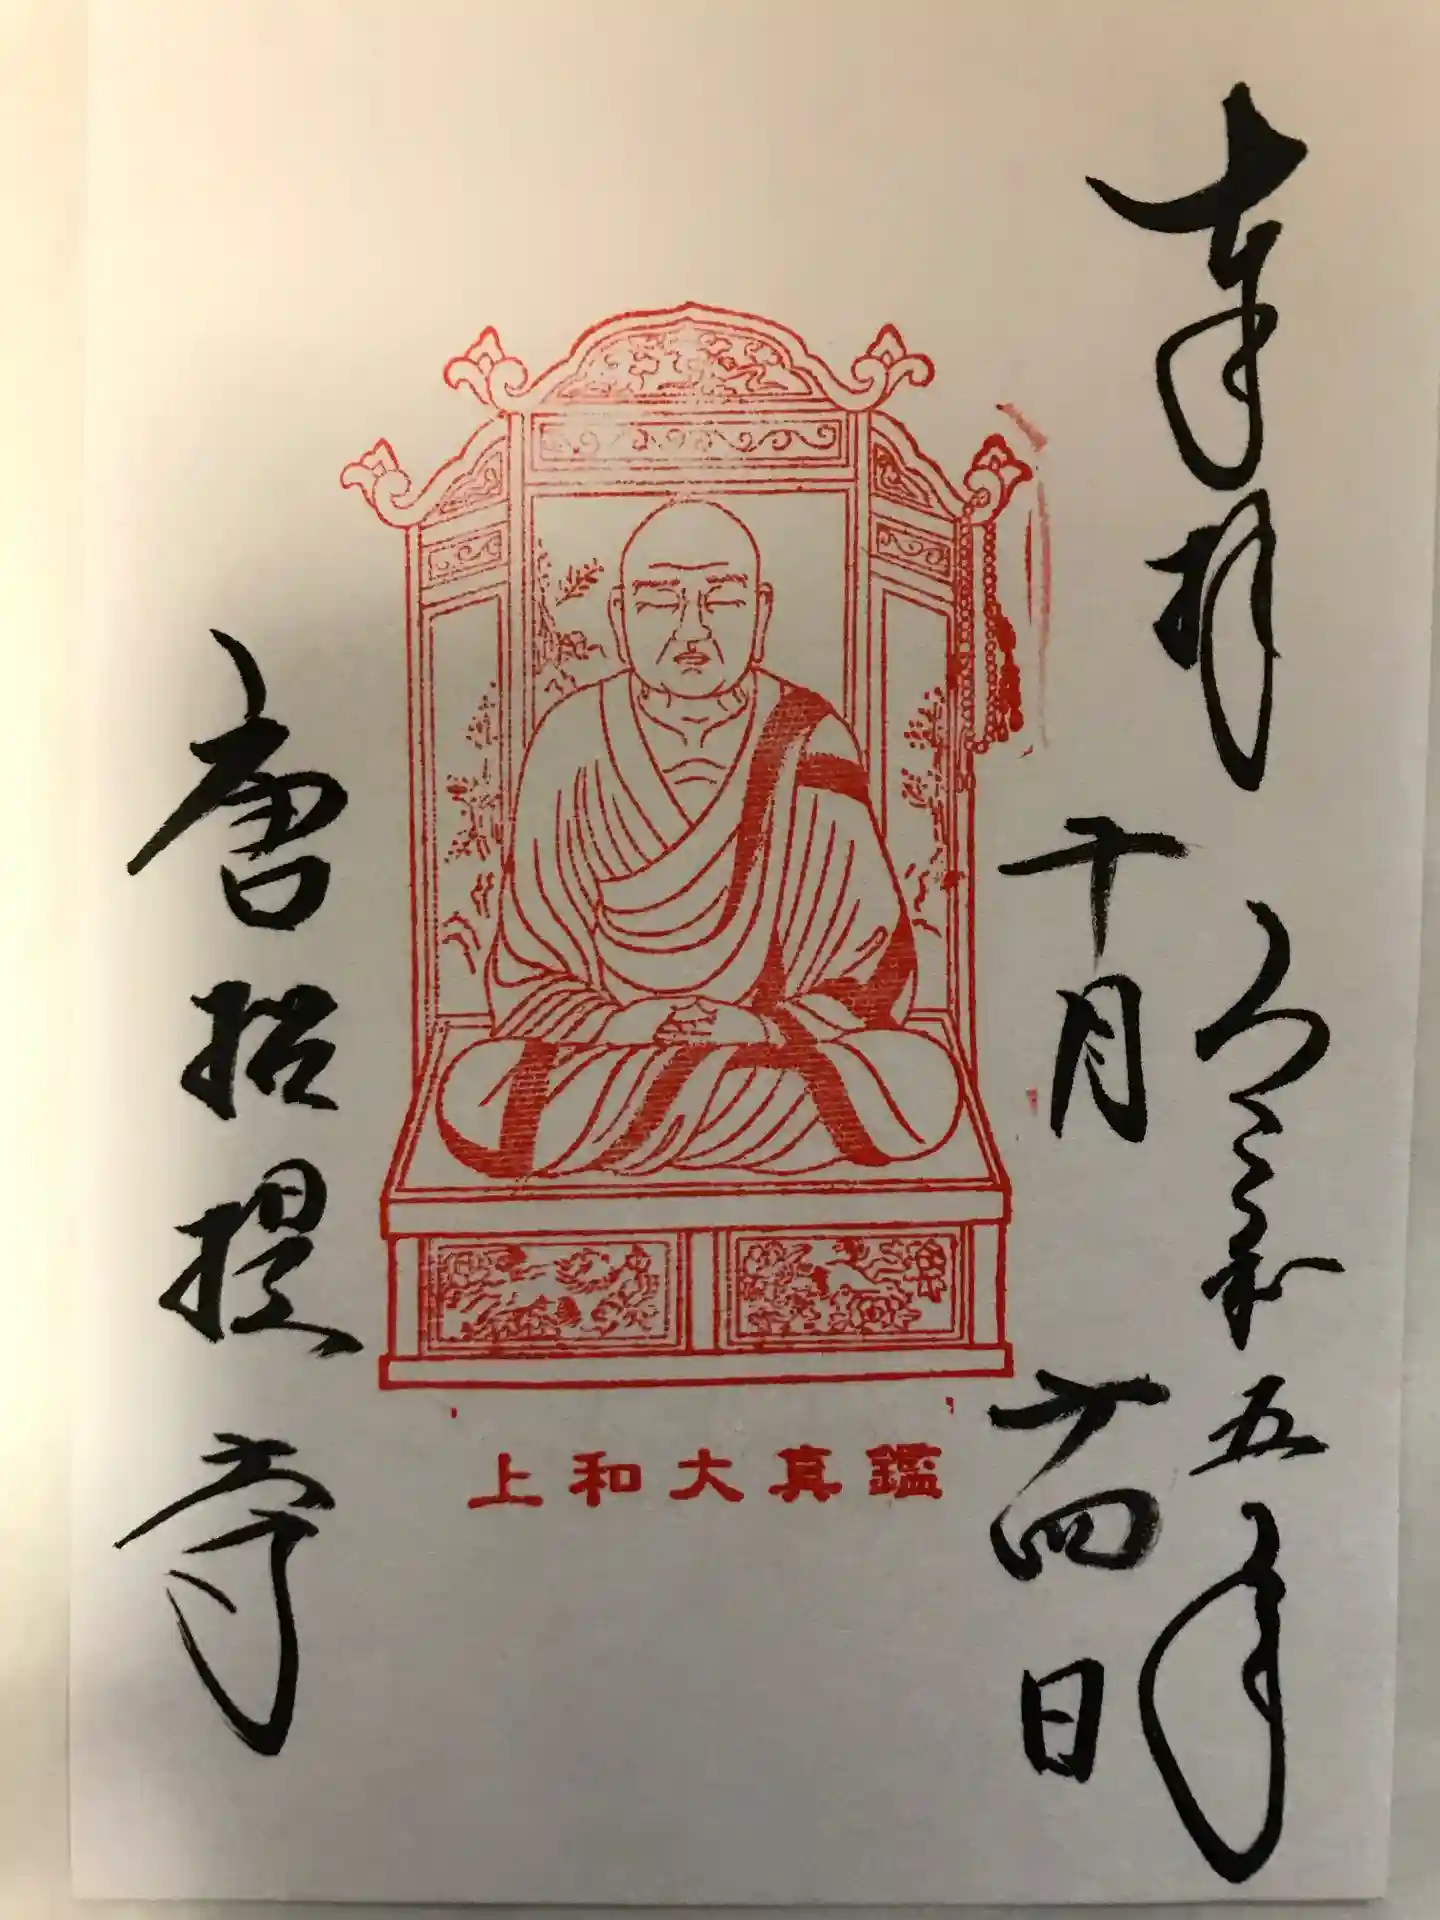 奉拝
令和五年
十月
廿四日
上和大真鑑
唐招提寺